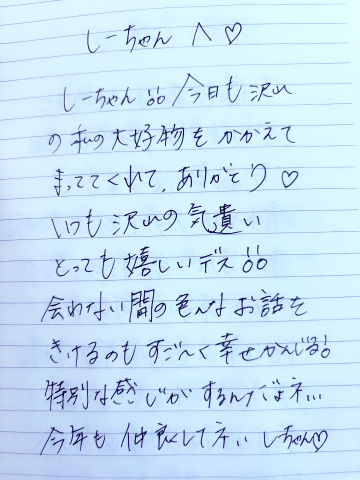 しーちゃん へ♡
しーちゃん!! 今日も沢山
の私の大好物をかかえて
まっててくれて、ありがとう♡
いつも沢山の気遣い
とっても嬉しいデス!!
会わない間の色んなお話を
きけるのもすご〜く幸せかんじる!
特別な感じがするんだよネ…
今年も仲良くしてネ、しーちゃん♡